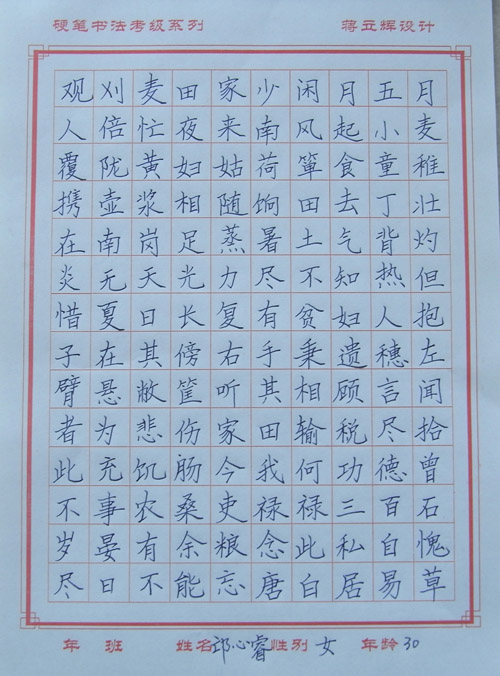 硬笔书法考级系列 蒋立辉设计
观刈麦田家少闲月五月
人倍忙夜来南风起小麦
覆陇黄妇姑荷箪食童稚
携壶浆相随饷田去丁壮
在南岗足蒸暑土气背灼
炎无天光力尽不知热但
惜夏日长复有贫妇人抱
子在其傍右手秉遗穗左
臂悬敝筐听其相顾言闻
者为悲伤家田输税尽拾
此充饥肠今我何功德曾
不事农桑吏禄禄三百石
岁晏有余粮念此私自愧
尽日不能忘唐白居易草
年 班 姓名邱心睿性别女 年龄30